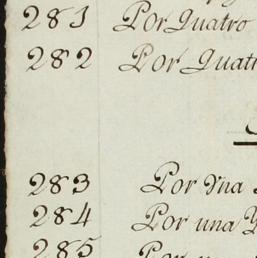 281 Por Quatro
282 Por Quatr
283 Por Vna
284 Por una
285 Por